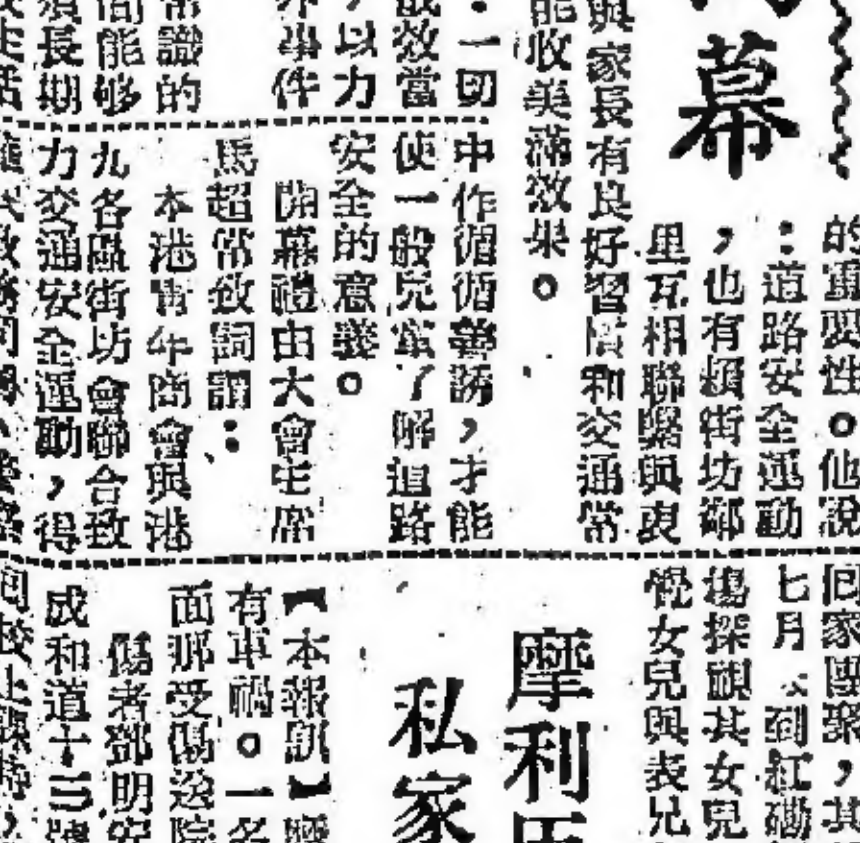 幕
的重要性。他說
：道路安全運動
，也有賴街坊鄰
里互相聯繫與衷
與家長有良好習慣和交通常
能收美滿效果。
：一切
效當
，以力
事件
常識的
間能够
長期
生活
中作循循善誘，才能
使一般兒童了解道路
安全的意義。
開幕禮由大會主席
馬超常致詞謂：
本港青年商會與港
九各區街坊會聯合致
力交通安全運動，得
回家團聚，其
七月 到紅磡
場探視其女兒
覺女兒與表兄
摩利
私家
【本報訊】
有車禍。一名
面部受傷送院
傷者鄧明安
成和道十三號
回校上課時，